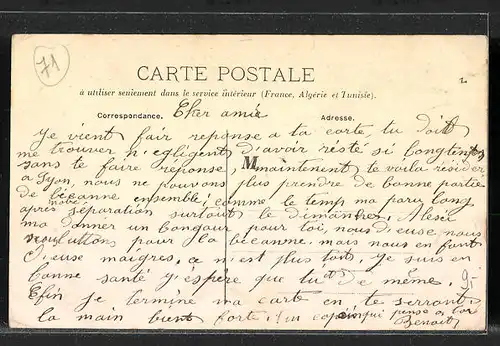 71
CARTE POSTALE
1.
à utiliser seulement dans le service intérieur (France, Algérie et Tunisie).
Correspondance. Cher amie Adresse.
Je vient fair reponse a ta corte, tu doit
me trouver n'egligent d'avoir résté si longtemps
sans te faire réponse, M maintenent te voila résider
a Lyon, nous ne pouvons plus prendre de bonne partie
de bécanne ensemble, comme le temp ma paru long
apres notre séparation surtout le dimanches.
ma donner un bongour pour toi, nous
pour la bécanne, mais nous en font
maigres, ce n'est plus toit. Je suis en
bonne santé j'éspère que tut de même. 9-
Efin je termine ma carte en te serront
la main bient forte. qui pense a toi
Benoit